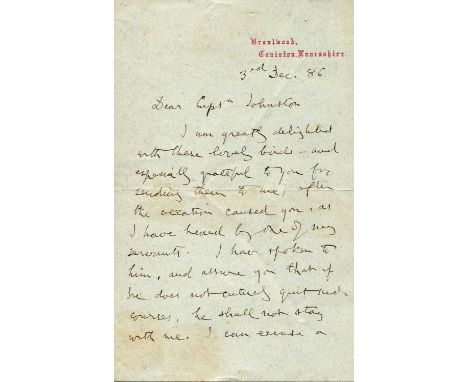 Brantwood,
Coniston, Lancashire.
3rd Dec. 86
Dear Captn Johnston
I am greatly delighted
with these lovely birds - and
especially grateful to you for
sending them to me, after
the vexation caused you, as
I have heard by one of my
servants. I have spoken to
him, and assure you that if
he does not entirely quit such
courses, he shall not stay
with me. I can excuse a